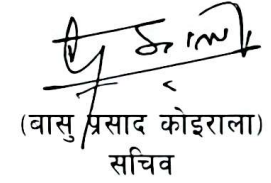 (बासु प्रसाद कोइराला)
सचिव